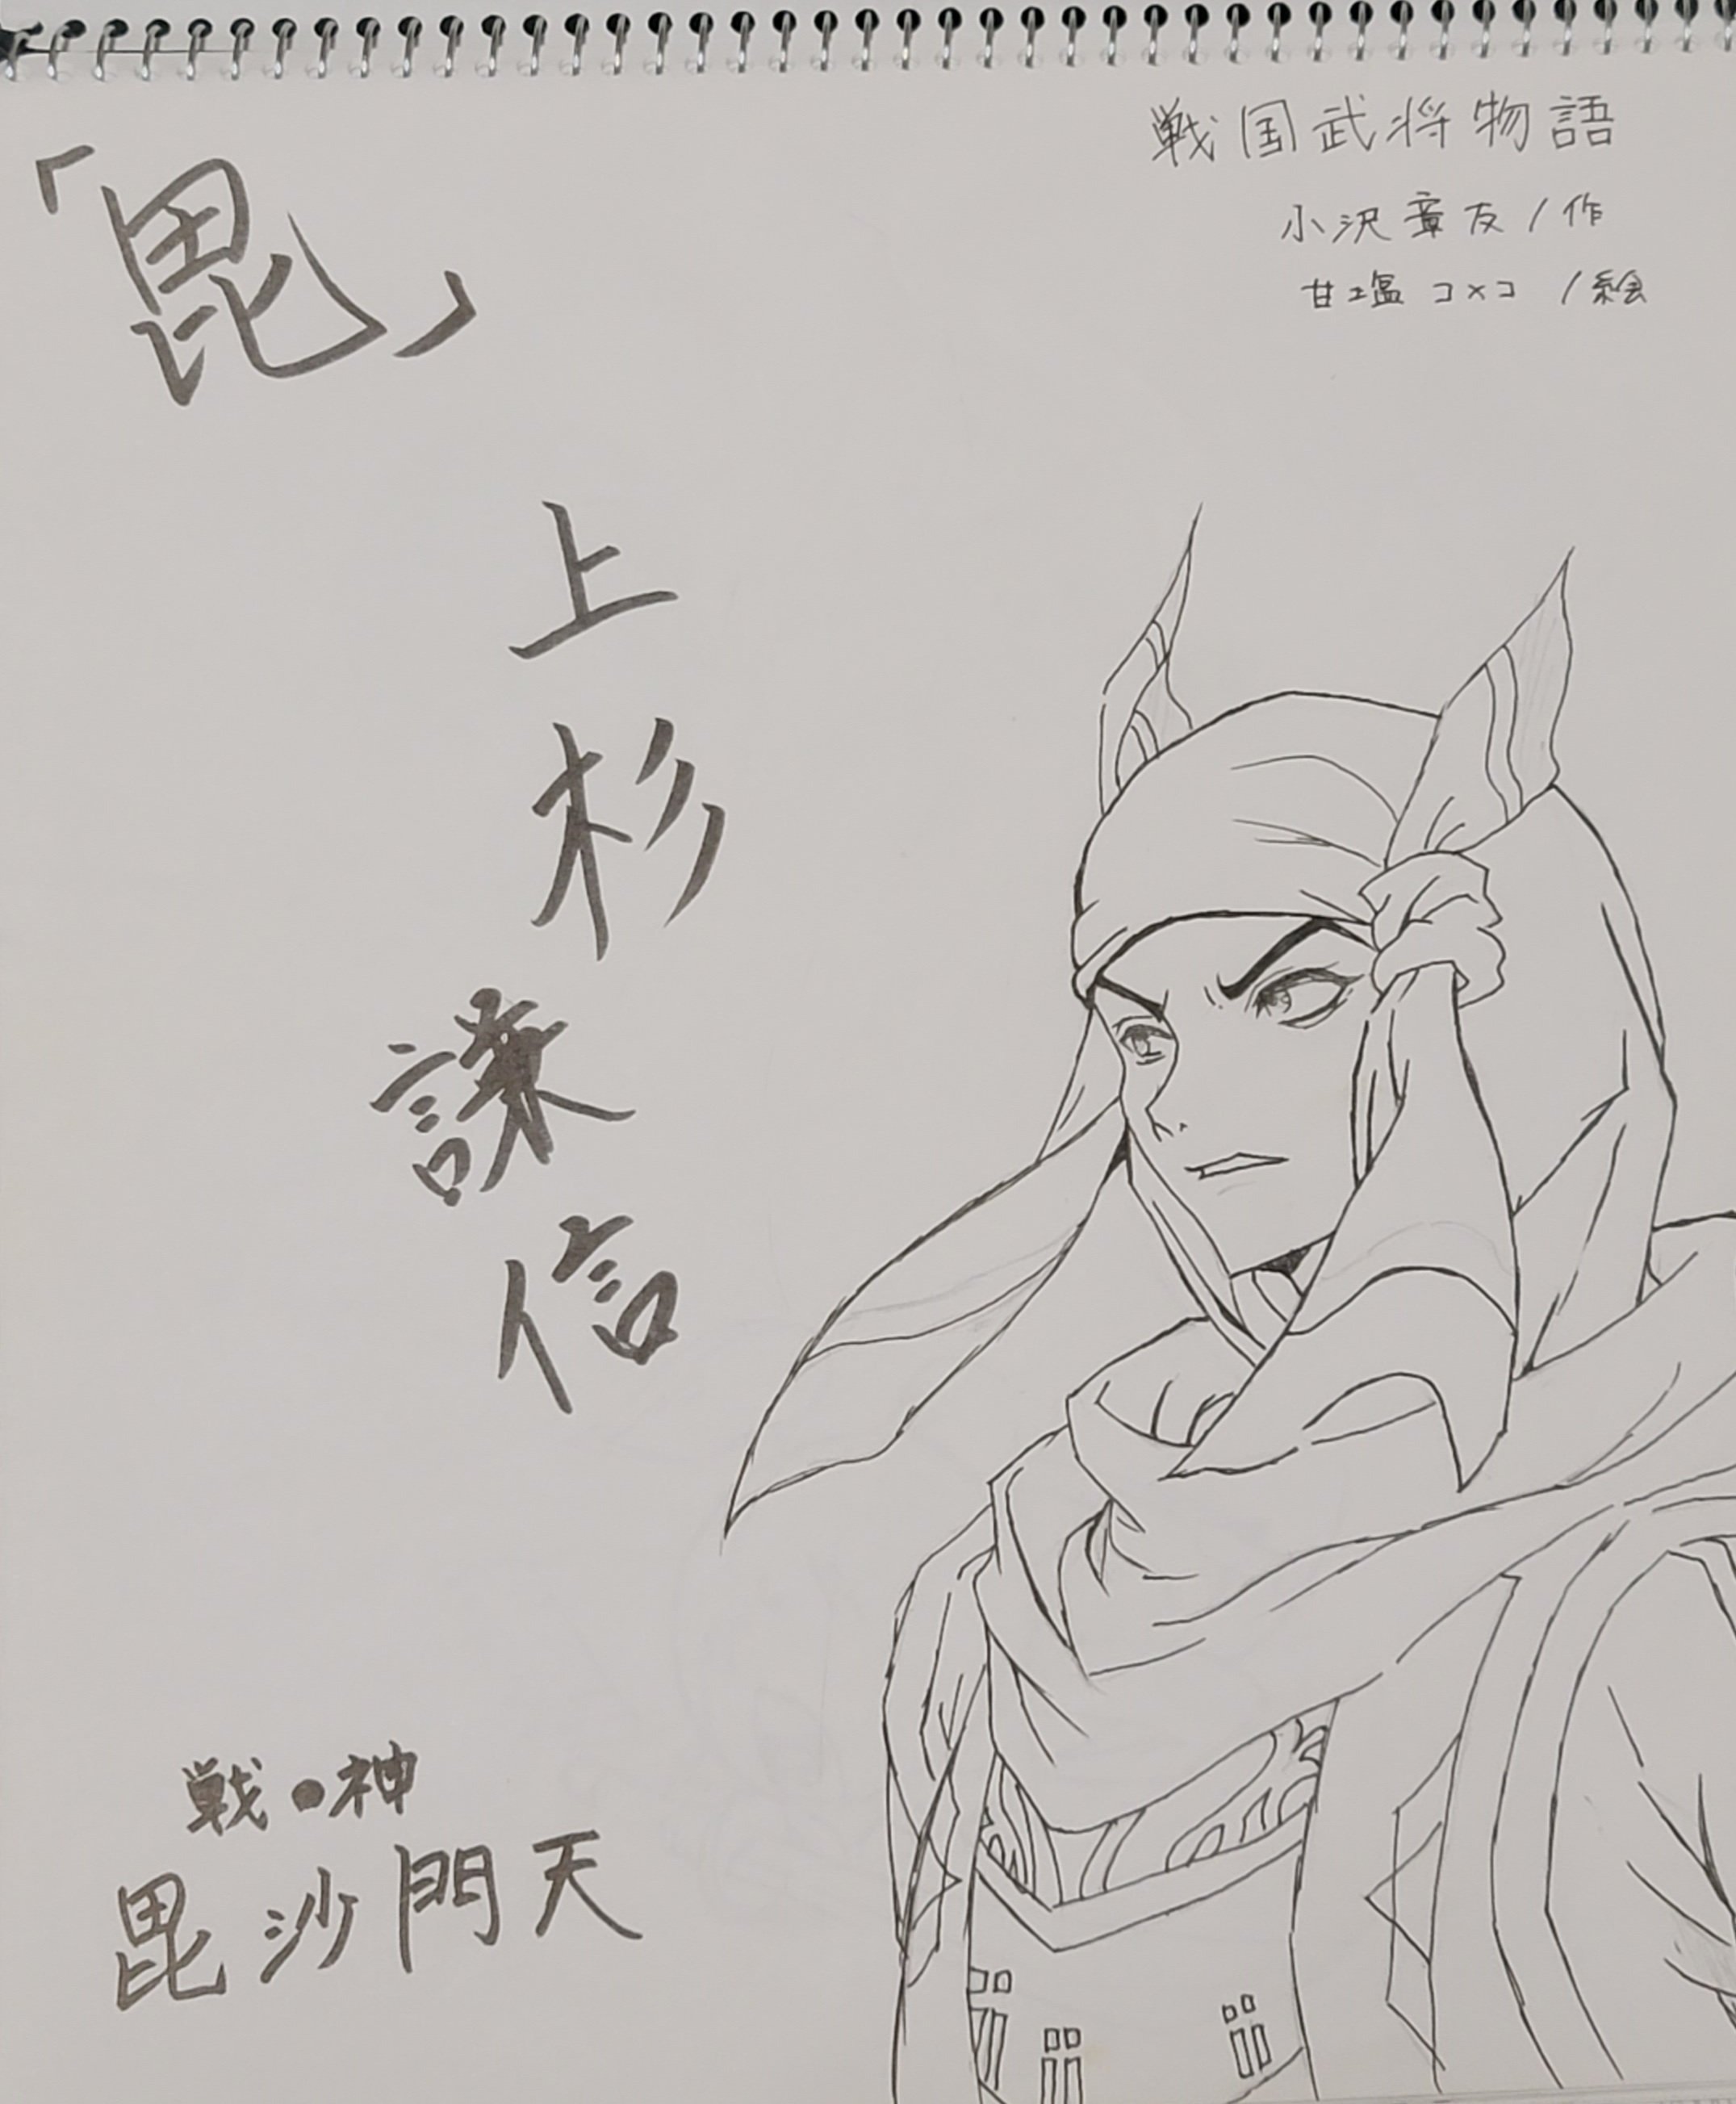 戦国武将物語
小沢章友/作
甘塩コメコ/絵
「毘」
上杉謙信
戦・神
毘沙門天